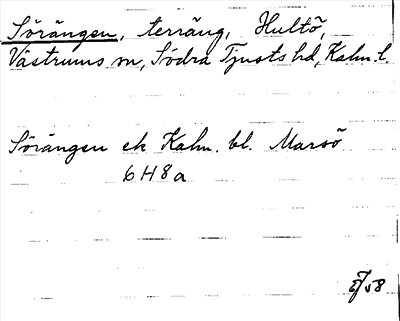 Sörängen, terräng, Hultö,
Västrums sn, Södra Tjusts hd, Kalm. l.
Sörängen ek Kalm. bl. Marsö
6H8a